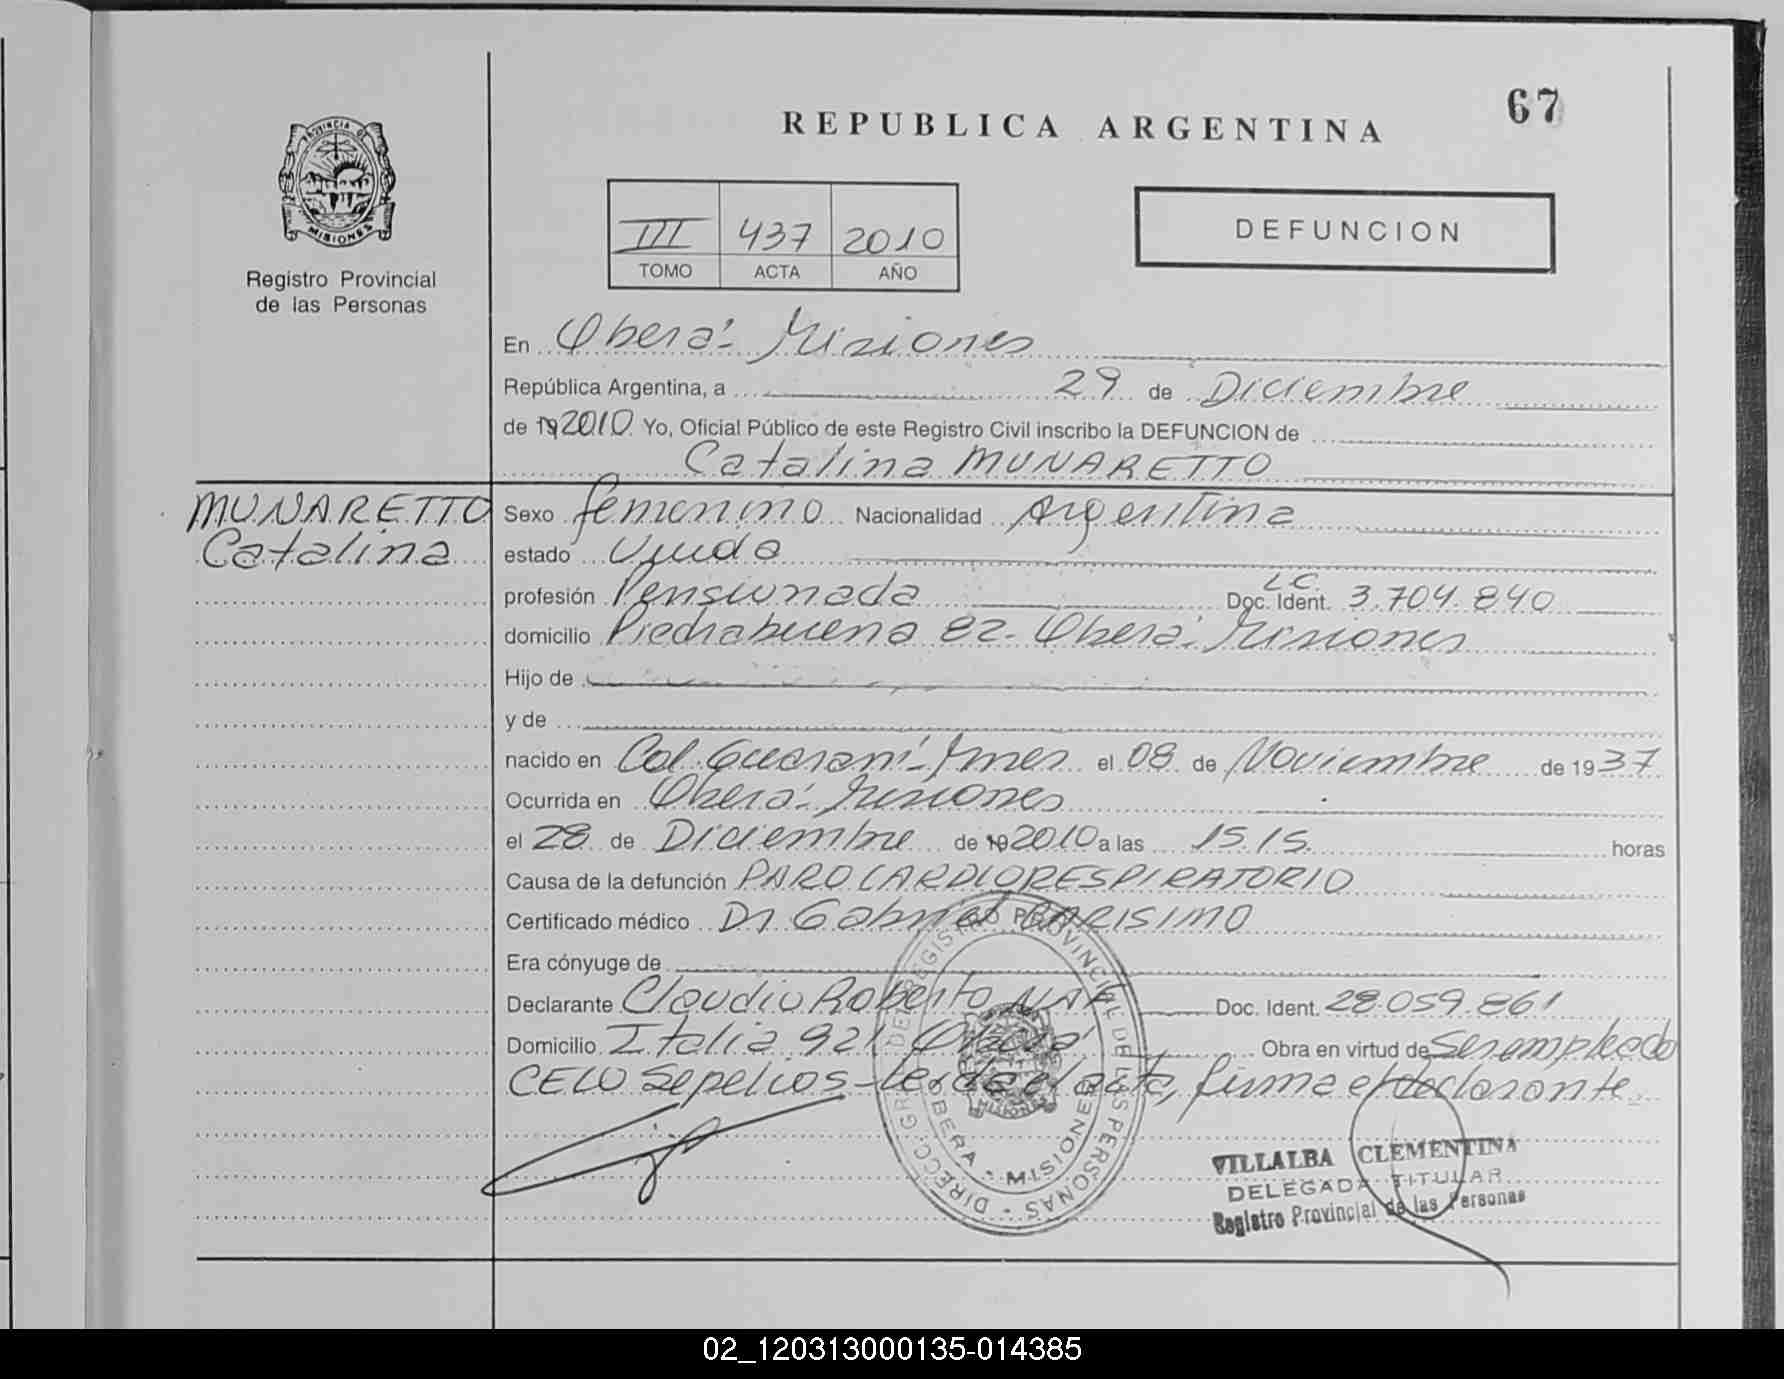 67
REPUBLICA ARGENTINA
PROVINCIA DE
MISIONES
Registro Provincial
de las Personas
III 437 2010
TOMO ACTA AÑO
DEFUNCION
En Oberá - Misiones
República Argentina, a 29 de Diciembre
de 19 2010 Yo, Oficial Público de este Registro Civil inscribo la DEFUNCION de
Catalina MUNARETTO
MUNARETTO
Catalina
Sexo femenino Nacionalidad Argentina
estado Viuda
profesión Pensionada Doc. Ident. L.C. 3.704.840
domicilio Piedrabuena 82 - Oberá - Misiones
Hijo de
y de
nacido en Col. Guaraní - Mnes el 08 de Noviembre de 1937
Ocurrida en Oberá - Misiones
el 28 de Diciembre de 19 2010 a las 15.15. horas
Causa de la defunción PARO CARDIORESPIRATORIO
Certificado médico Dr Gabriel CARISIMO
Era cónyuge de
Declarante Claudio Roberto Doc. Ident. 28.059.861
Domicilio Italia 921 Oberá Obra en virtud de Ser empleado
CELO Sepelios - Leída el acta, firma el declarante.
DIRECC. GRAL. DEL REGISTRO PROVINCIAL DE LAS PERSONAS
OBERA - MISIONES
MISIONES
VILLALBA CLEMENTINA
DELEGADA TITULAR
Registro Provincial de las Personas
02_120313000135-014385